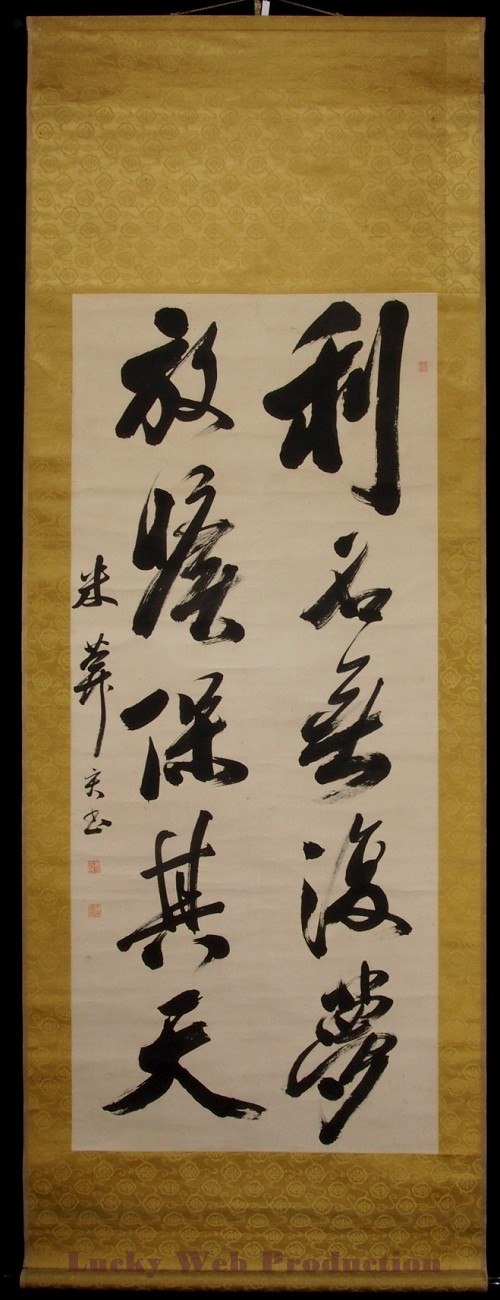 利名無復夢
放曠保其天
米葊亥書
Lucky Web Production